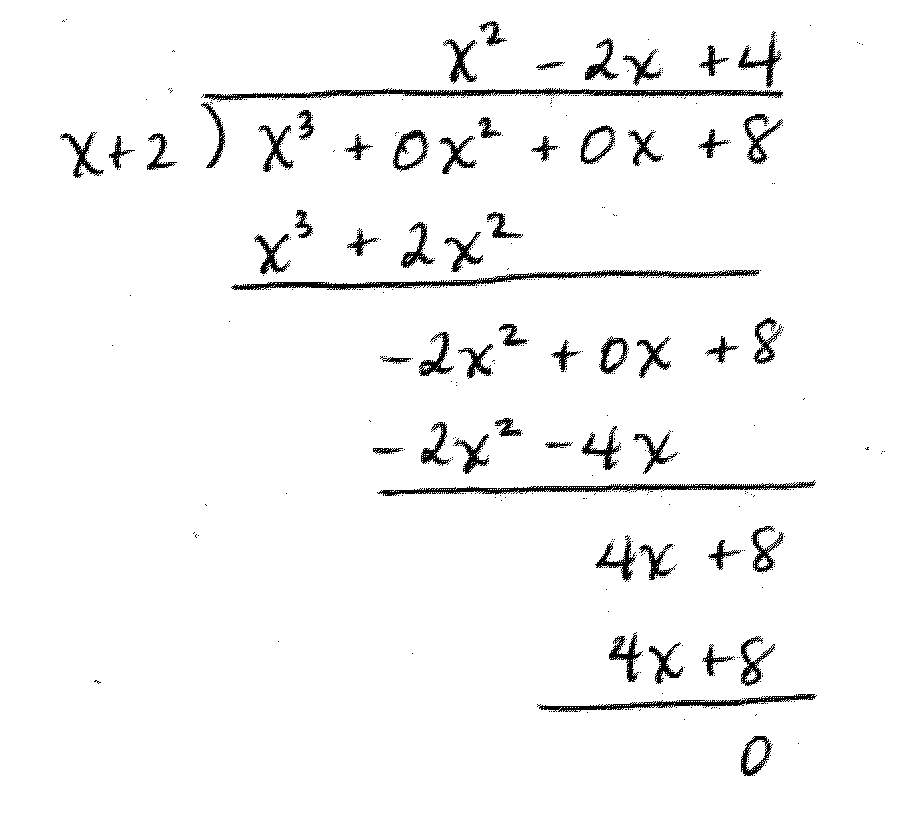 x² - 2x + 4
x+2 ) x³ + 0x² + 0x + 8
x³ + 2x²
-2x² + 0x + 8
-2x² - 4x
4x + 8
4x + 8
0